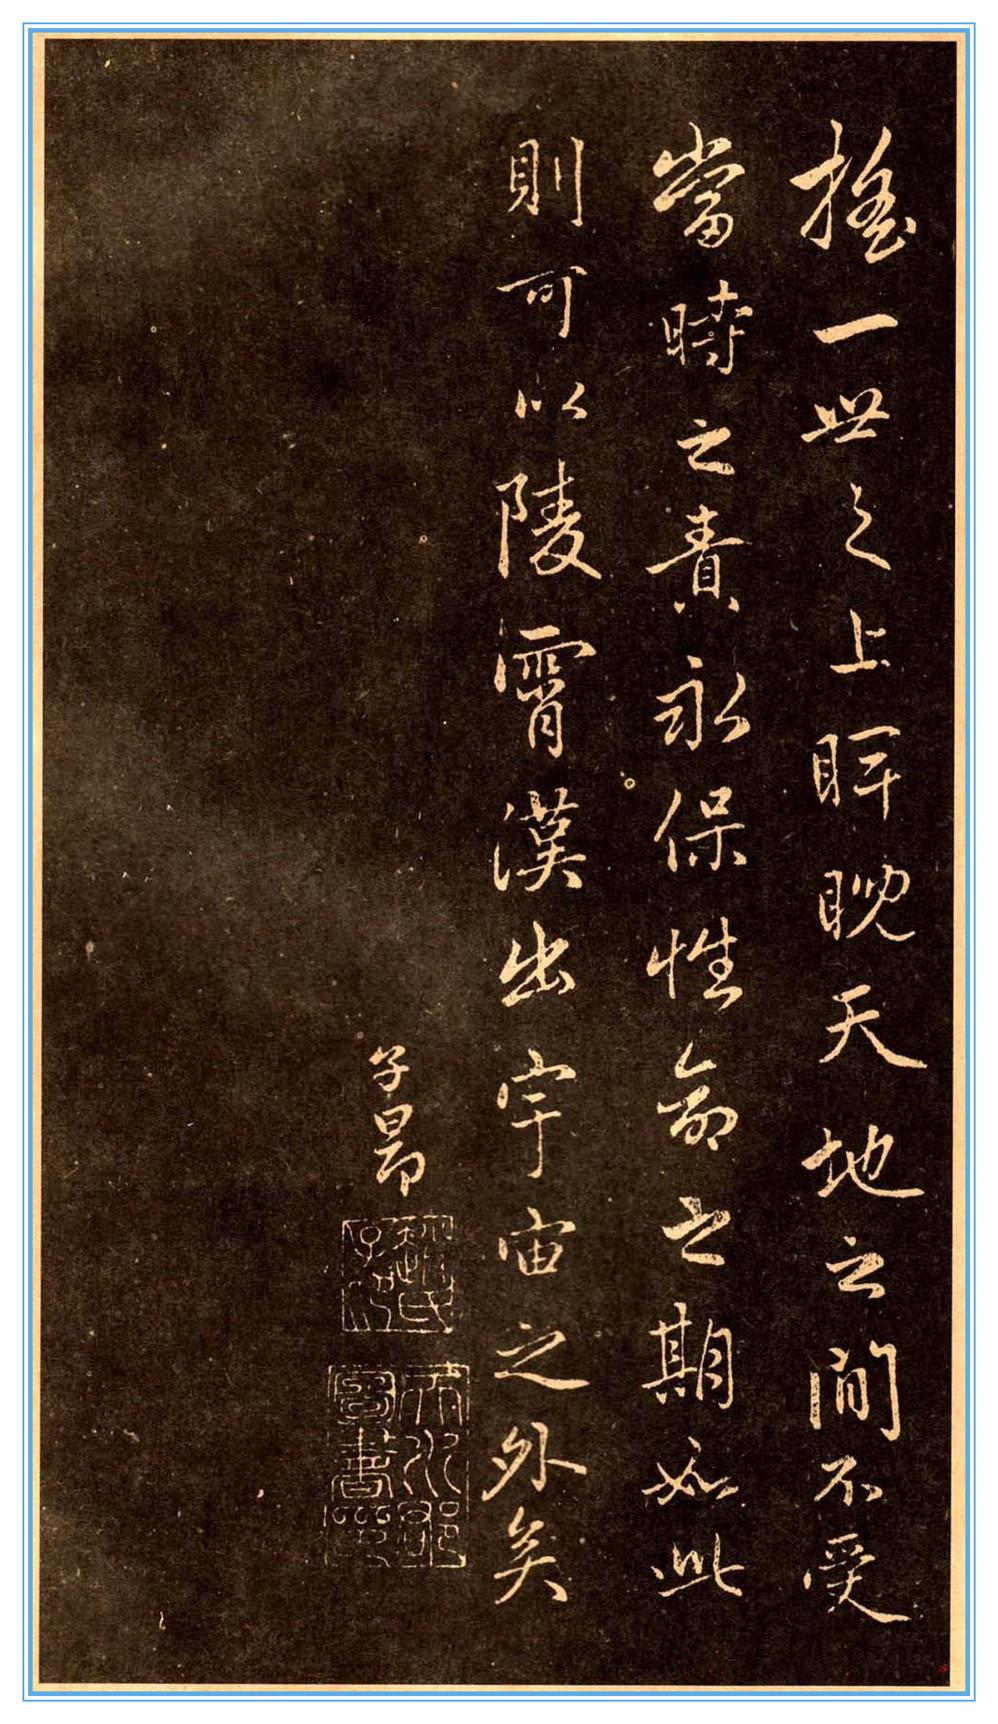 搖一世之上睥睨天地之間不受
當時之責永保性命之期如此
則可以陵霄漢出宇宙之外矣
子昂
趙氏子昂
天水郡圖書印